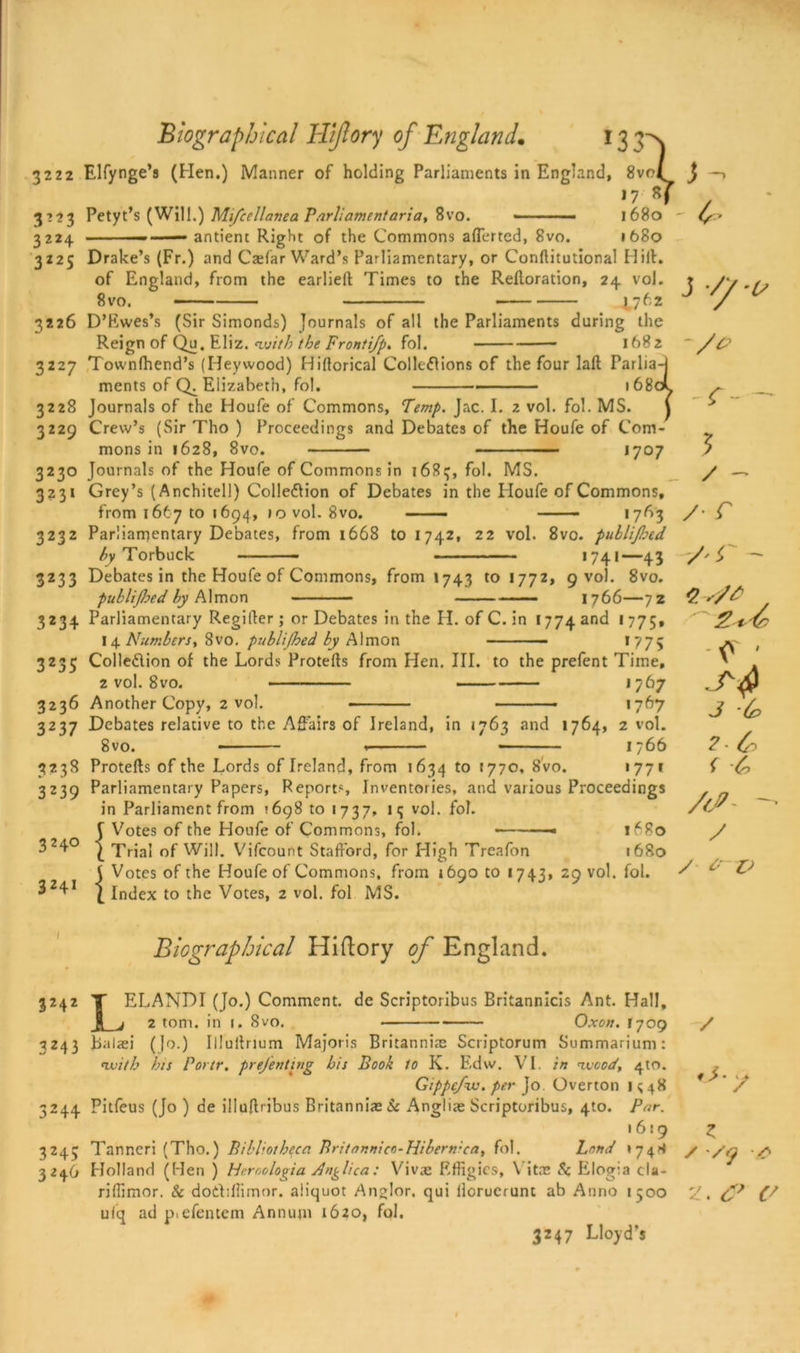 Biographical Hiſtory of England. 133
3222 Elſynge’s (Hen.) Manner of holding Parliaments in England, 8vo.
17
3223 Petyt’s (Will.) Miſcellanea Parliamentaria, 8vo. ——— 1680
3224 ——— antient Right of the Commons aſſerted, 8vo. 1680
3225 Drake’s (Fr.) and Cæſar Ward’s Parliamentary, or Conſtitutional Hiſt.
of England, from the earlieſt Times to the Reſtoration, 24 vol.
8vo. ——— ——— ——— 1762
3226 D’Ewes’s (Sir Simonds) Journals of all the Parliaments during the
Reign of Qu. Eliz. with the Frontiſp. fol. ——— 1682
3227 Townſhend’s (Heywood) Hiſtorical Collections of the four laſt Parlia-
ments of Q. Elizabeth, fol. ——— 1680
3228 Journals of the Houſe of Commons, Temp. Jac. I. 2 vol. fol. MS.
3229 Crew’s (Sir Tho ) Proceedings and Debates of the Houſe of Com-
mons in 1628, 8vo. ——— ——— 1707
3230 Journals of the Houſe of Commons in 1685, fol. MS.
3231 Grey’s (Anchitell) Collection of Debates in the Houſe of Commons,
from 1667 to 1694, 10 vol. 8vo. ——— ——— 1763
3232 Parliamentary Debates, from 1668 to 1742, 22 vol. 8vo. publiſhed
by Torbuck ——— ——— 1741—43
3233 Debates in the Houſe of Commons, from 1743 to 1772, 9 vol. 8vo.
publiſhed by Almon ——— ——— 1766—72
3234 Parliamentary Regiſter ; or Debates in the H. of C. in 1774 and 1775,
14 Numbers, 8vo. publiſhed by Almon ——— 1775
3235 Collection of the Lords Proteſts from Hen. III. to the preſent Time,
2 vol. 8vo. ——— ——— 1767
3236 Another Copy, 2 vol. ——— ——— 1767
3237 Debates relative to the Affairs of Ireland, in 1763 and 1764, 2 vol.
8vo. ——— ——— ——— 1766
3238 Proteſts of the Lords of Ireland, from 1634 to 1770, 8vo. 1771
3239 Parliamentary Papers, Reports, Inventories, and various Proceedings
in Parliament from 1698 to 1737, 15 vol. fol.
3240 { Votes of the Houſe of Commons, fol. ——— 1680
{ Trial of Will. Viſcount Stafford, for High Treaſon 1680
3241 { Votes of the Houſe of Commons, from 1690 to 1743, 29 vol. fol.
{ Index to the Votes, 2 vol. fol MS.
Biographical Hiſtory of England.
3242 LELANDI (Jo.) Comment. de Scriptoribus Britannicis Ant. Hall,
2 tom. in 1. 8vo. ——— Oxon. 1709
3243 Balæi (Jo.) Illuſtrium Majoris Britanniæ Scriptorum Summarium:
with his Portr. preſenting his Book to K. Edw. VI. in wood, 4to.
Gippeſw. per Jo. Overton 1548
3244 Pitſeus (Jo ) de illuſtribus Britanniæ & Angliæ Scriptoribus, 4to. Par.
1619
3245 Tanneri (Tho.) Bibliotheca Britannico-Hibernica, fol. Lond 1748
3246 Holland (Hen ) Herωologia Anglica: Vivæ Effigies, Vitæ & Elogia cla-
riſſimor. & doctiſſimor. aliquot Anglor. qui floruerunt ab Anno 1500
uſq ad præſentem Annum 1620, fol.
3247 Lloyd’s